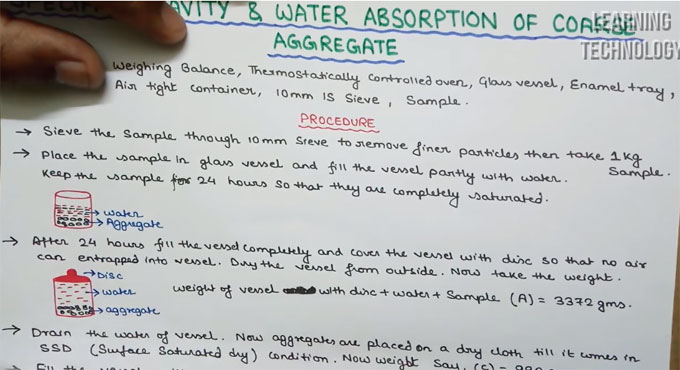 AVITY & WATER ABSORPTION OF COARSE
AGGREGATE
LEARNING
TECHNOLOGY
Weighing Balance, Thermostatically controlled oven, Glass vessel, Enamel tray,
Air tight container, 10mm IS Sieve, Sample.
PROCEDURE
→ Sieve the sample through 10mm sieve to remove finer particles then take 1kg
Sample.
→ Place the sample in glass vessel and fill the vessel partly with water.
Keep the sample for 24 hours so that they are completely saturated.
→ water
→ Aggregate
→ After 24 hours fill the vessel completely and cover the vessel with disc so that no air
can entrapped into vessel. Dry the vessel from outside. Now take the weight.
→ Disc
→ water
→ aggregate
weight of vessel with disc + water + Sample (A) = 3372 gms.
→ Drain the water of vessel. Now aggregates are placed on a dry cloth till it comes in
SSD (Surface Saturated dry) condition. Now weight Say, (C) =